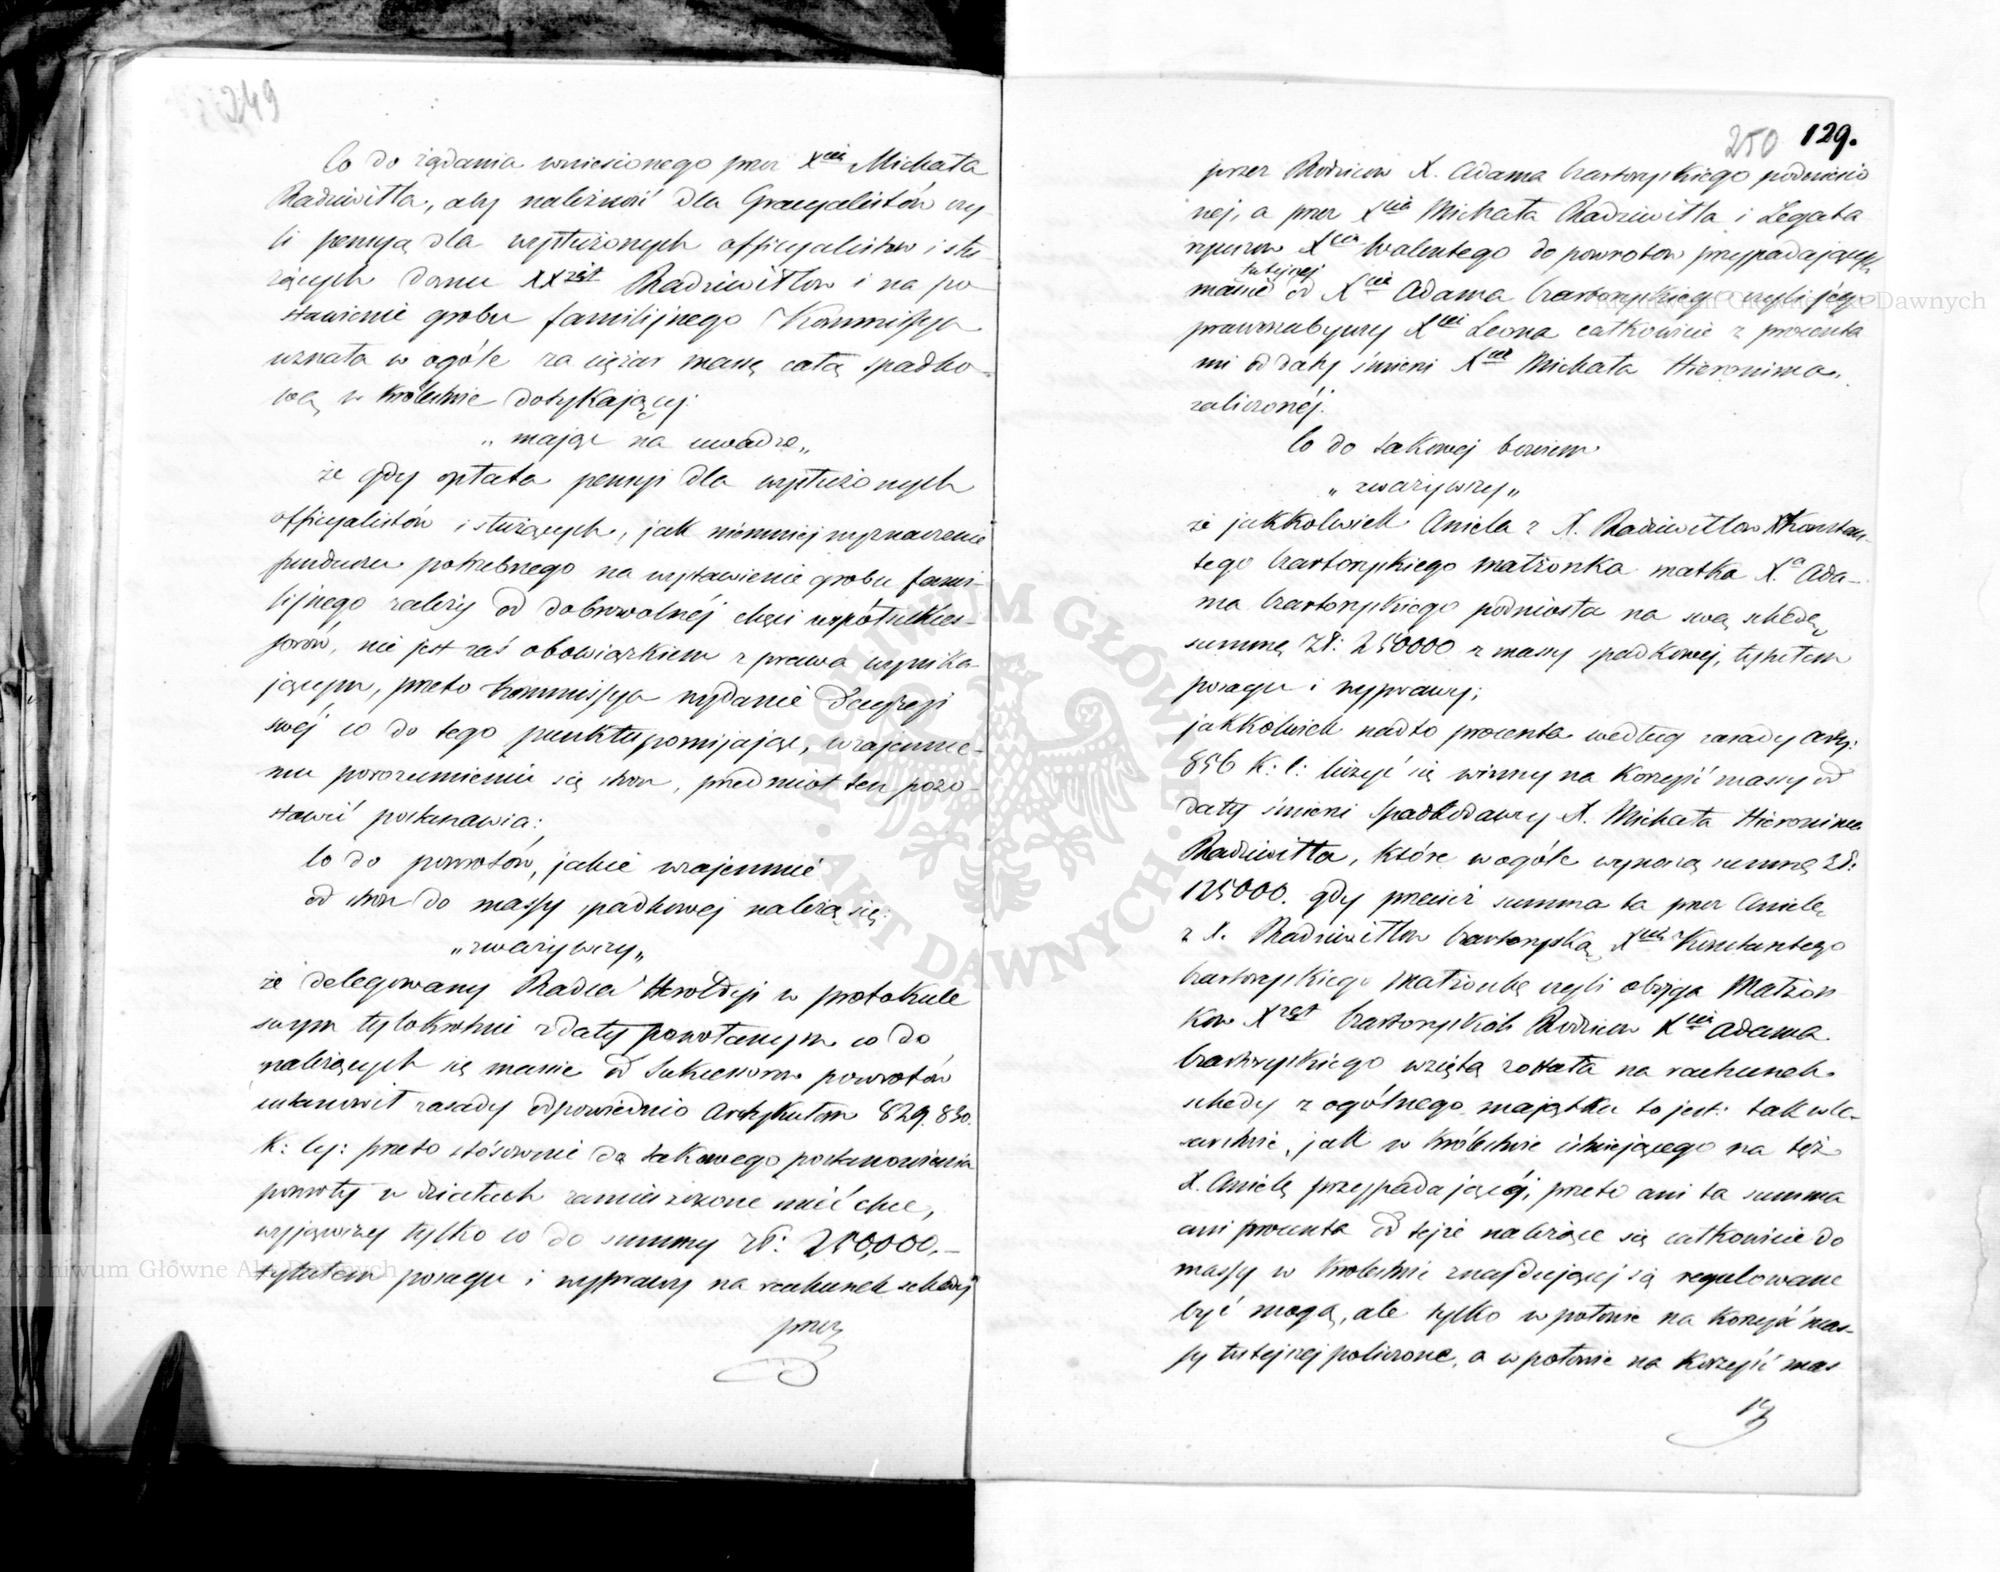 249
Co do żądania wniesionego przez Xcia Michała
Radziwiłła, aby należność dla Gracyalistów czy-
li pensyą dla wysłużonych officyalistów i słu-
żących domu XXżąt Radziwiłłów i na po-
stawienie grobu familijnego Kommissya
uznała w ogóle za ciężar massę całą spadko-
wą w Królestwie dotykający:
„mając na uwadze„
że gdy opłata pensyi dla wysłużonych
officyalistów i służących, jak niemniej wyznaczenie
funduszu potrzebnego na wystawienie grobu fami-
lijnego zależy od dobrowolnéj chęci współsukces-
sorów, nie jest zaś obowiązkiem z prawa wynika-
jącym, przeto Kommissya wydanie Decyzyi
swéj co do tego punktu pomijając, wzajemne-
mu porozumieniu się stron, przedmiot ten pozo-
stawić postanawia;
Co do powrotów, jakie wzajemnie
od stron do massy spadkowej należą się:
„zważywszy„
że delegowany Radca Heroldyi w protokule
swym tylokrotnie z daty powołanym co do
należących się massie od Sukcessorów powrotów
ustanowił zasady odpowiednio Artykułom 829. 830.
K: Cy: przeto stósownie do takowego postanowienia
powroty w działach zamieszczone mieć chce,
wyjąwszy tylko co do summy zł: 250,000.—
tytułem posagu i wyprawy na rachunek schedy
przez
250 129.
przez Rodziców X. Adama Czartoryskiego podniesio
nej, a przez Xcia Michała Radziwiłła i Legata
ryuszów Xcia Walentego do powrotów przypadających
tutejszej
massie od Xcia Adama Czartoryskiego czyli jego
prawonabywcy Xcia Leona całkowicie z procenta
mi od daty śmierci Xcia Michała Hieronima,
zaliczonéj.
Co do takowej bowiem
„zważywszy„
że jakkolwiek Aniela z X. Radziwiłłów XKonstan-
tego Czartoryskiego małżonka matka X.a Ada-
ma Czartoryskiego podniosła na swą schedę
summę Zł: 250000 z massy spadkowej, tytułem
posagu i wyprawy;
jakkolwiek nadto procenta według zasady Arty:
856 K: C: liczyć się winny na korzyść massy od
daty śmierci Spadkodawcy X. Michała Hieronima
Radziwiłła, które w ogóle wynoszą summę Zł:
125000. gdy przecież summa ta przez Anielę
z X. Radziwiłłów Czartoryską Xcia Konstantego
Czartoryskiego Małżonkę czyli obojga Małżon
ków Xżąt Czartoryskich Rodziców Xcia Adama
Czartoryskiego wziętą została na rachunek
schedy z ogólnego majątku to jest: tak w Ce-
sarstwie, jak w Królestwie istniejącego na też
X. Anielę przypadającéj, przeto ani ta summa
ani procenta od tejże należące się całkowicie do
massy w Królestwie znajdującej się regulowane
być mogą, ale tylko w połowie na korzyść mas-
sy tutejszej policzone, a w połowie na korzyść mas
sy
Archiwum Główne Akt Dawnych
Archiwum Główne Akt Dawnych
ARCHIWUM GŁÓWNE · AKT DAWNYCH ·